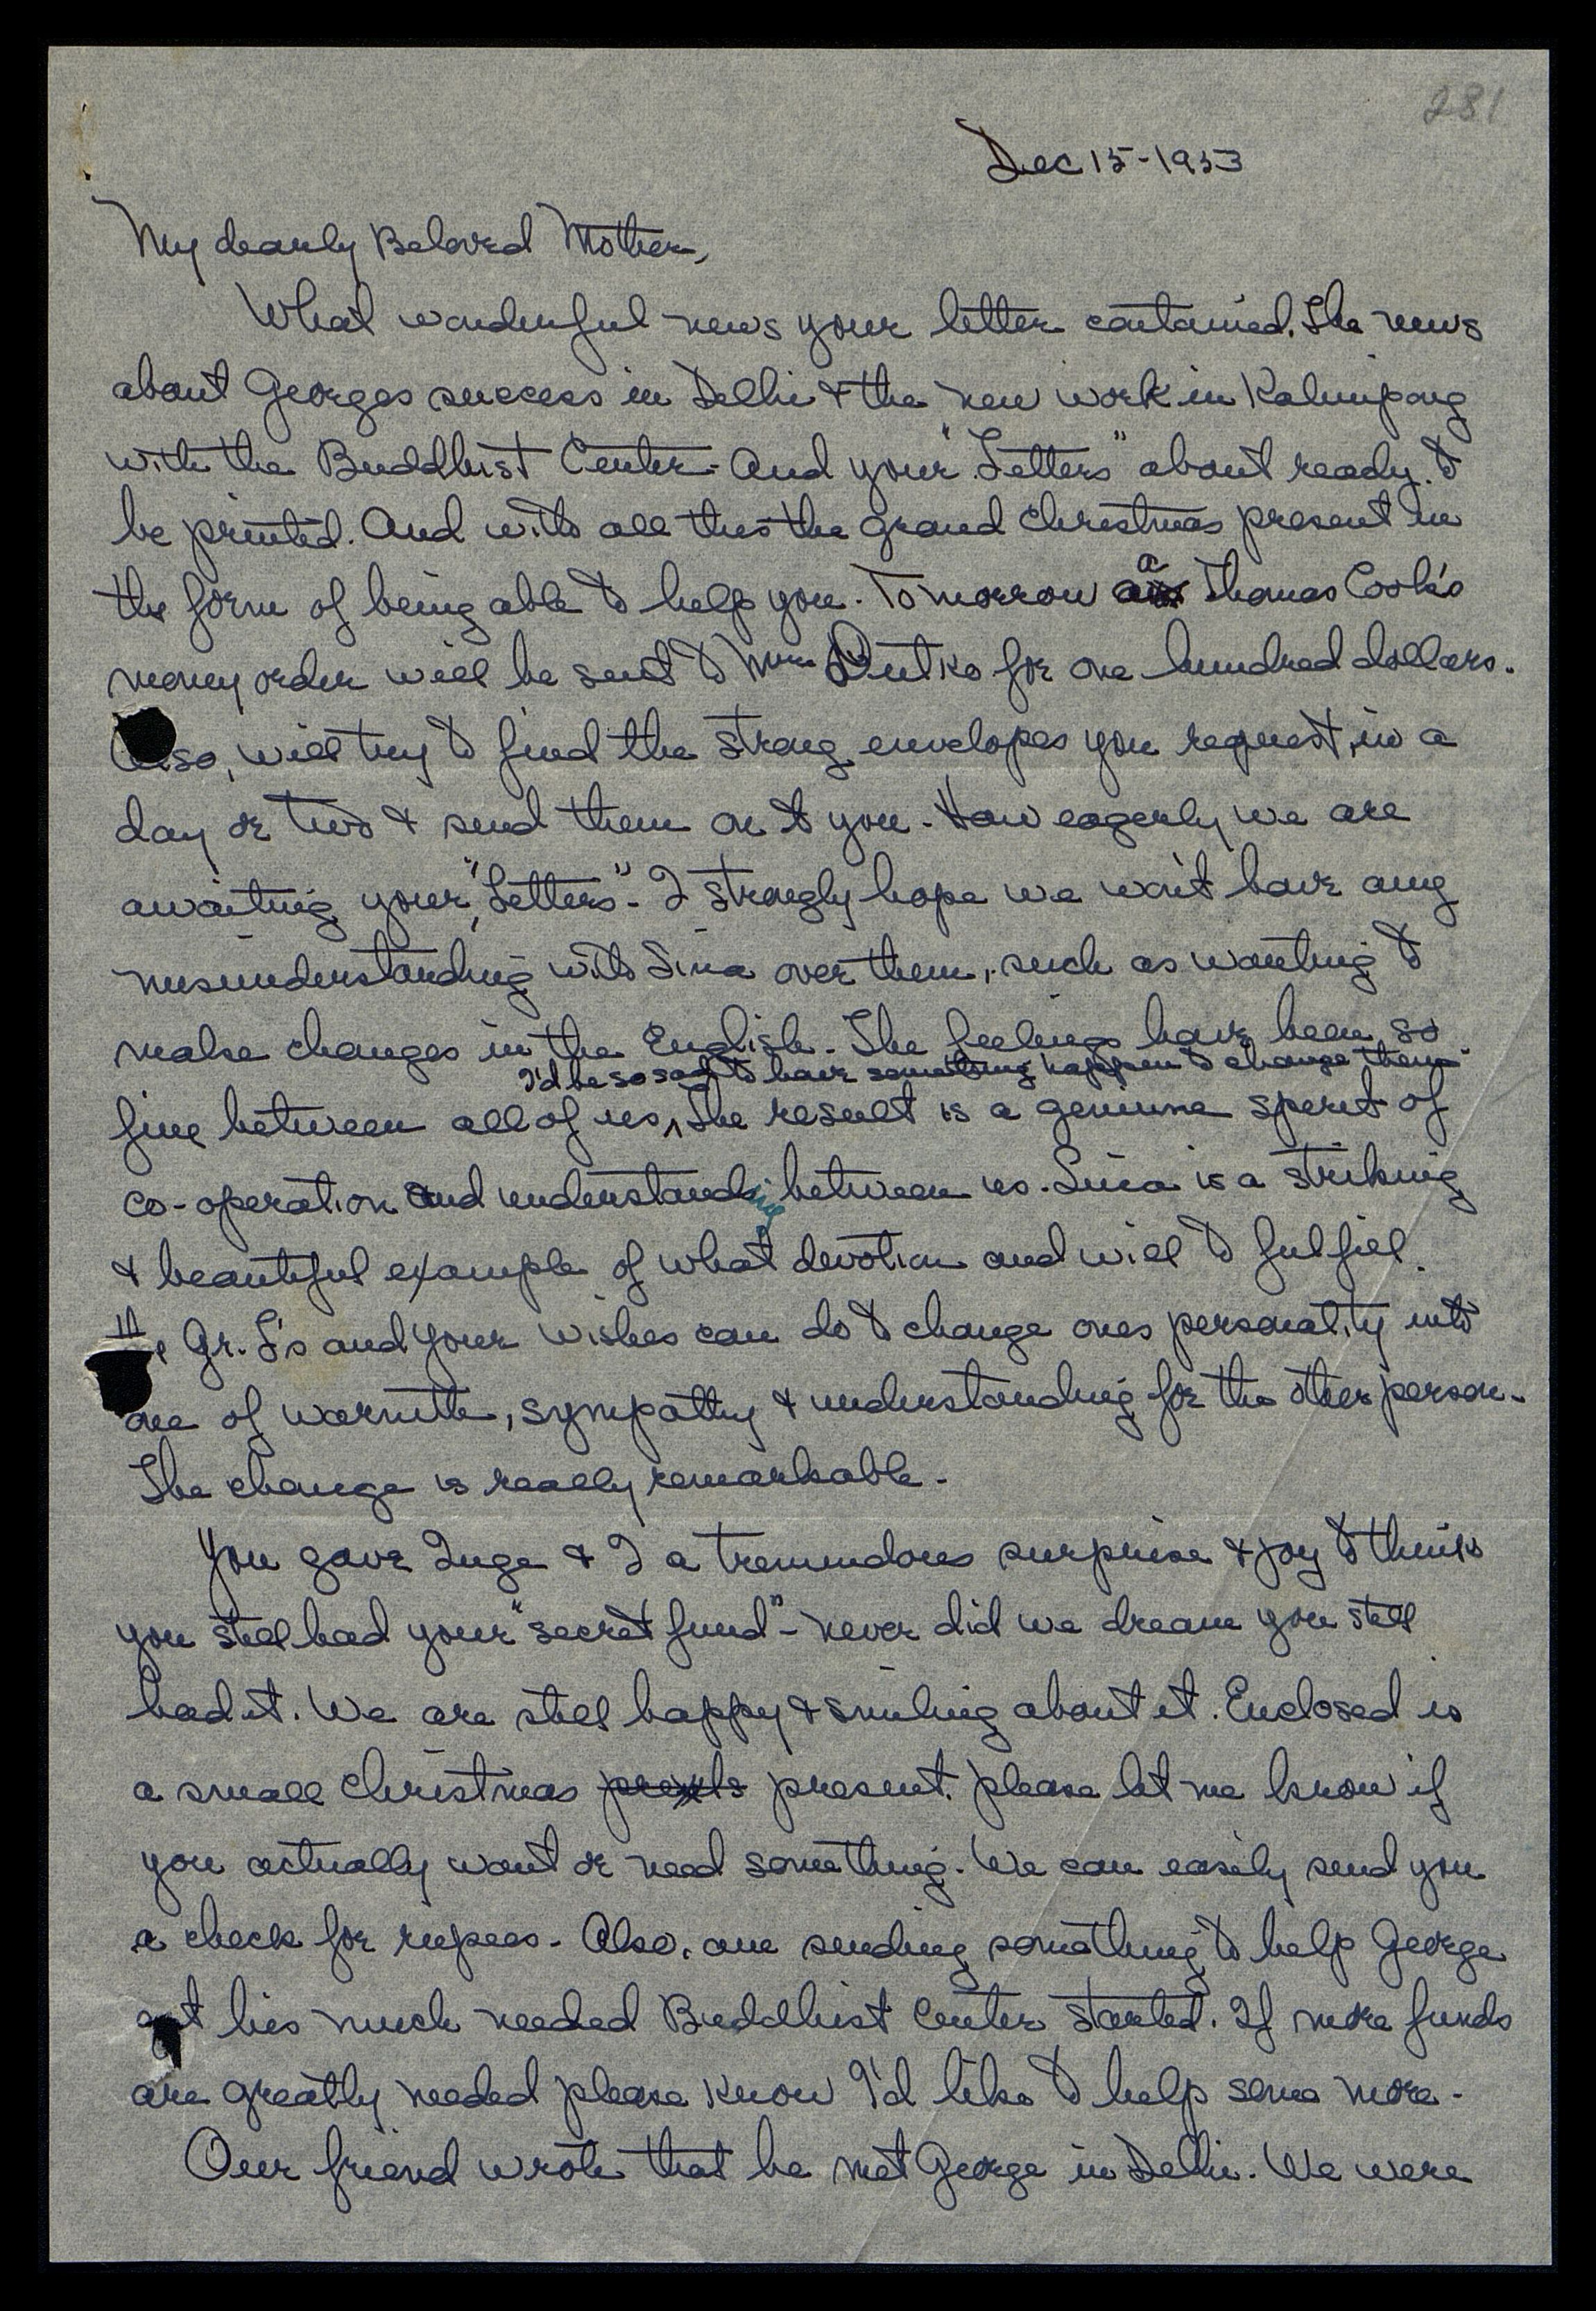 281
Dec 15-1953
My dearly Beloved Mother,
What wonderful news your letter contained. The news
about Georges success in Delhi & the new work in Kalimpong
with the Buddhist Center. And your "Letters" about ready to
be printed. And with all this the grand Christmas present in
the form of being able to help you. Tomorrow a Thomas Cook's
money order will be sent to Mrs Dutko for one hundred dollars.
Also, will try to find the strong envelopes you request, in a
day or two & send them on to you. How eagerly we are
awaiting your "Letters". I strongly hope we won't have any
misunderstanding with Sina over them, such as wanting to
make changes in the English. The feelings have been so
I'd be so sad to have something happen to change them
fine between all of us, The result is a geniune spirit of
co-operation and understanding between us. Sina is a striking
& beautiful example of what devotion and will to fulfill
the Gr. L's and your wishes can do to change ones personality into
one of warmth, sympathy & understanding for the other person.
The change is really remarkable.
You gave Inge & I a tremendous surprise & joy to think
you still had your "secret fund" - never did we dream you still
had it. We are still happy & smiling about it. Enclosed is
a small Christmas present. please let me know if
you actually want or need something. We can easily send you
a check for rupees. Also, am sending something to help George
get his much needed Buddhist Center started. If more funds
are greatly needed please know I'd like to help some more.
Our friend wrote that he met George in Delhi. We were